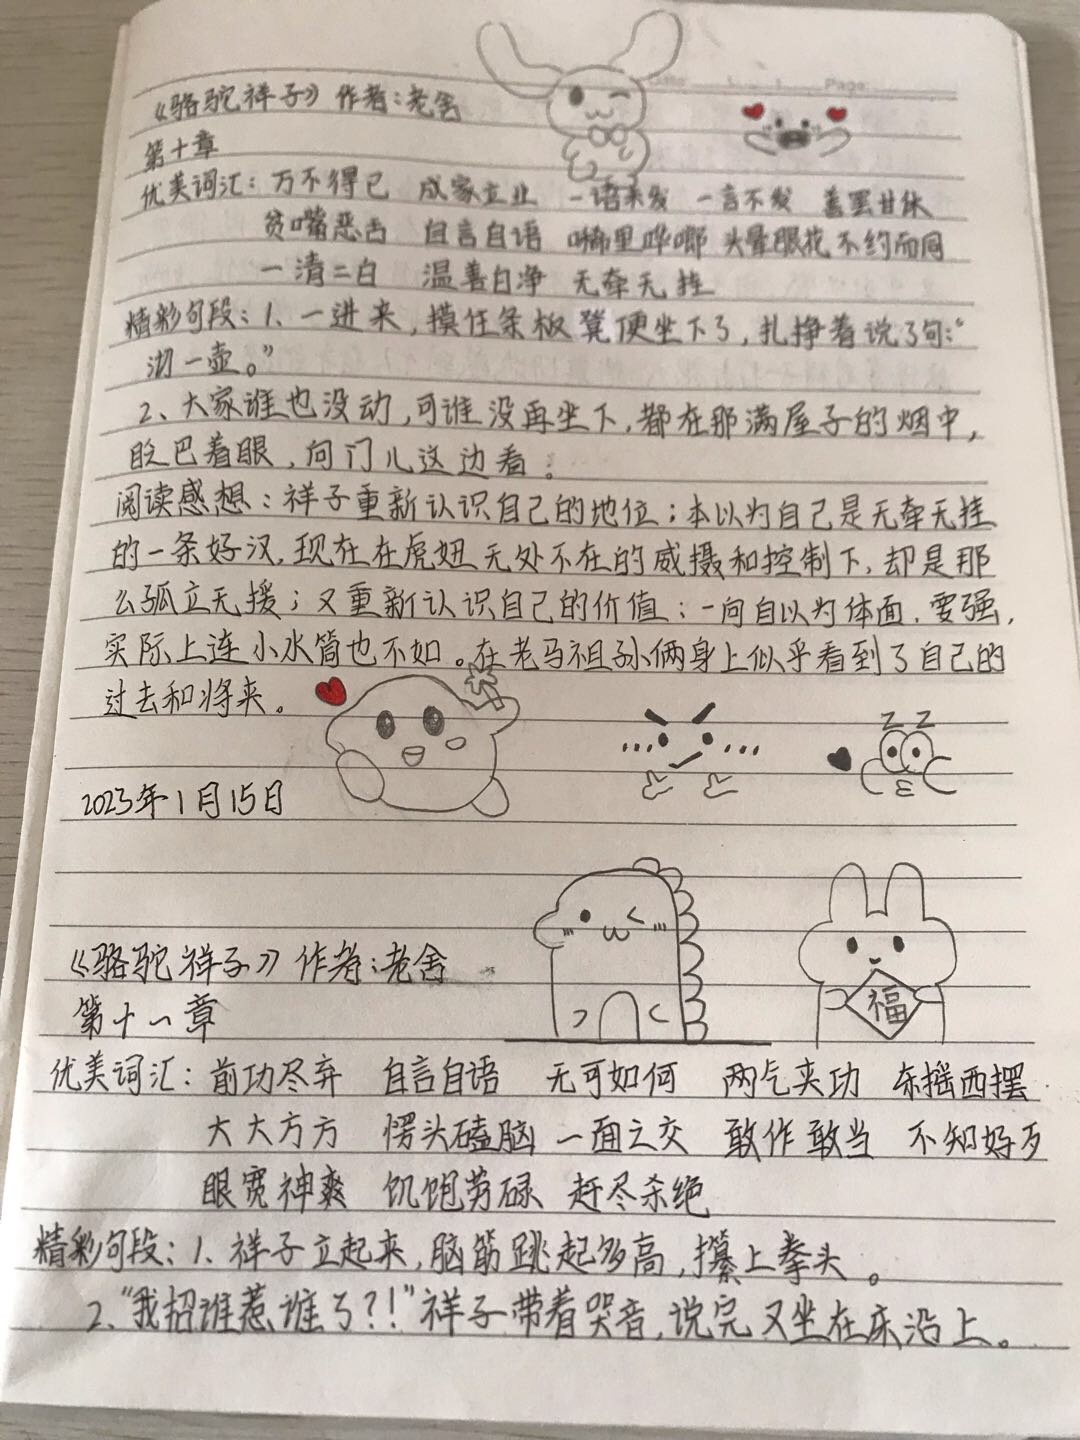 《骆驼祥子》作者：老舍
第十章
优美词汇：万不得已 成家立业 一语未发 一言不发 善罢甘休
贫嘴恶舌 自言自语 唏里哗啷 头晕眼花 不约而同
一清二白 温善白净 无牵无挂
精彩句段：1、一进来，摸住条板凳便坐下了，扎挣着说了句：“
沏一壶。”
2、大家谁也没动，可谁没再坐下，都在那满屋子的烟中，
眨巴着眼，向门儿这边看。
阅读感想：祥子重新认识自己的地位；本以为自己是无牵无挂
的一条好汉，现在在虎妞无处不在的威摄和控制下，却是那
么孤立无援；又重新认识自己的价值：一向自以为体面，要强，
实际上连小水筲也不如。在老马祖孙俩身上似乎看到了自己的
过去和将来。
Z Z
2023年1月15日
《骆驼祥子》作者：老舍
第十一章
福
优美词汇：前功尽弃 自言自语 无可如何 两气夹功 东摇西摆
大大方方 愣头磕脑 一面之交 敢作敢当 不知好歹
眼宽神爽 饥饱劳碌 赶尽杀绝
精彩句段：1、祥子立起来，脑筋跳起多高，攥上拳头。
2、“我招谁惹谁了？！”祥子带着哭音，说完又坐在床沿上。